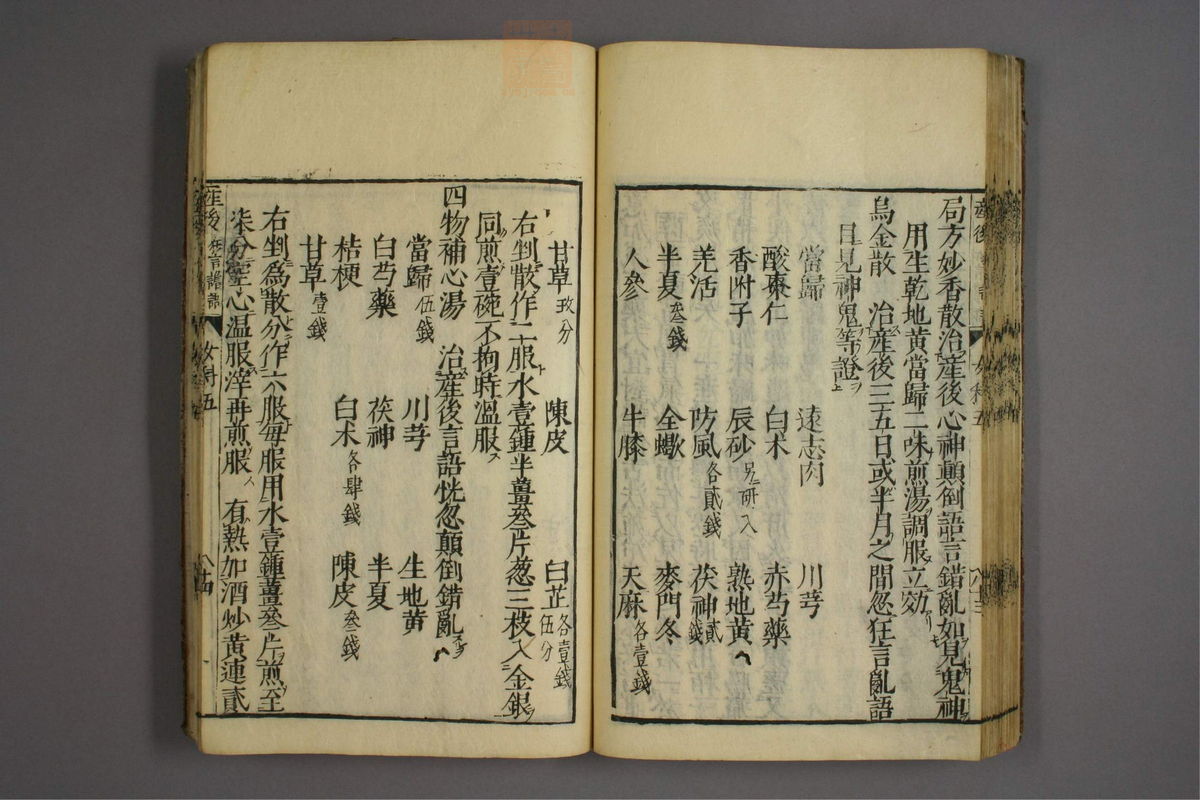 局方妙香散治產後心神顛倒語言錯亂如見鬼神
用生乾地黃當歸二味煎湯調服立効
烏金散 治產後三五日或半月之間忽狂言亂語
目見神鬼等證
當歸 遠志肉 川芎
酸棗仁 白朮 赤芍藥
香附子 辰砂另研入 熟地黃
羌活 防風各貳錢 茯神貳錢
半夏叁錢 全蠍 麥門冬
人參 牛膝 天麻各壹錢
甘草玖分 陳皮 白芷各壹錢伍分
右剉散作二服水壹鍾半薑叁片葱三枝入金銀
同煎壹碗不拘時溫服
四物補心湯 治產後言語恍忽顛倒錯亂
當歸伍錢 川芎 生地黃
白芍藥 茯神 半夏
桔梗 白朮各肆錢 陳皮叁錢
甘草壹錢
右剉為散分作六服每服用水壹鍾薑叁片煎至
柒分空心溫服滓再煎服 有熱加酒炒黃連貳
產後 狂言譫 女科五 八十四